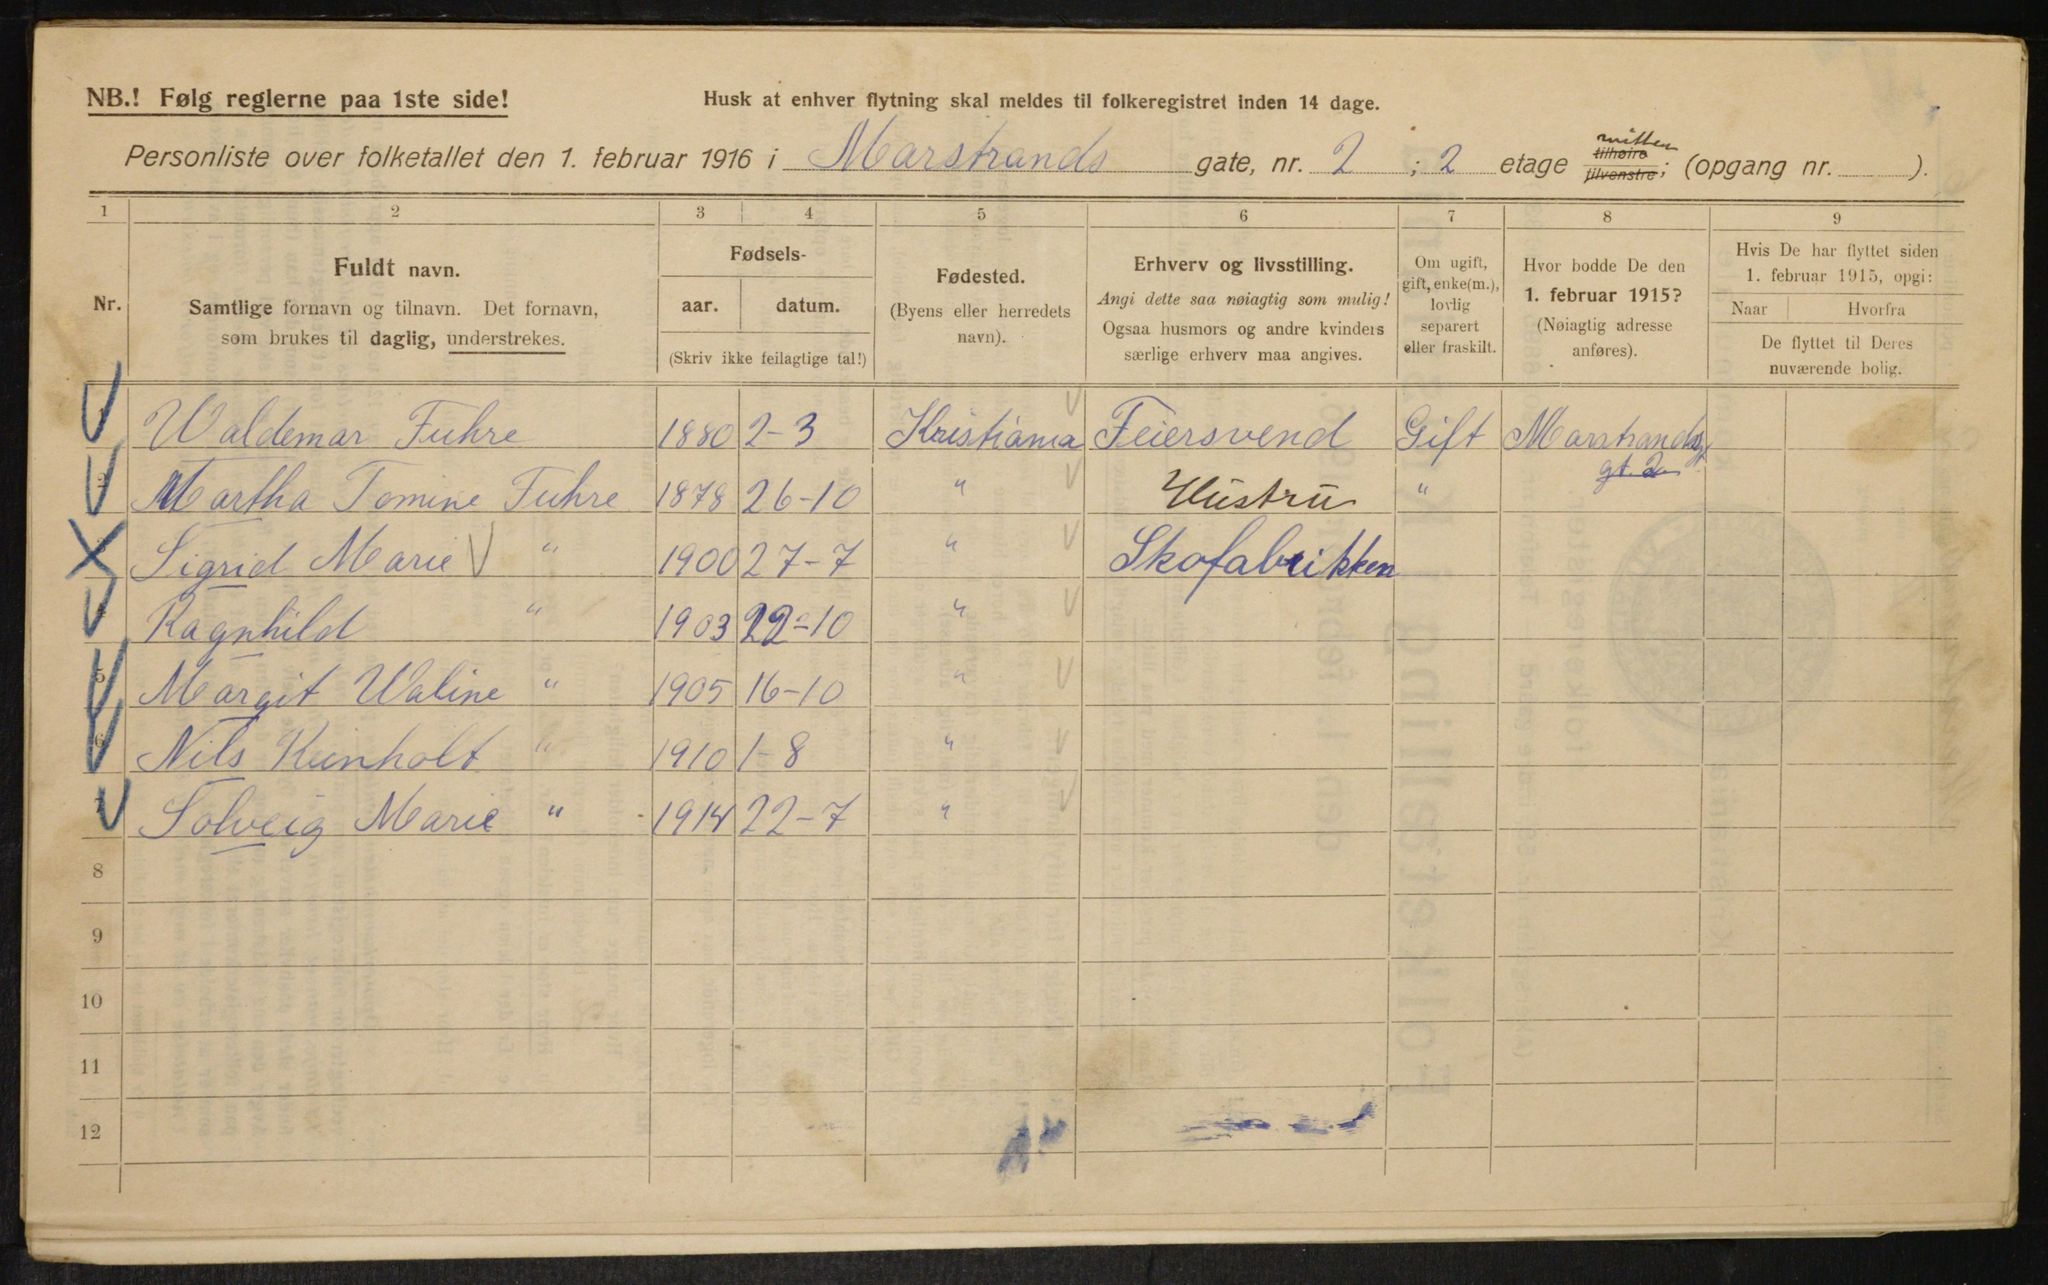 NB.! Følg reglerne paa 1ste side!
Husk at enhver flytning skal meldes til folkeregistret inden 14 dage.
Personliste over folketallet den 1. februar 1916 i Marstrands gate, nr. 2 ; 2 etage mitten tilhøire tilvenstre; (opgang nr. ).
1 2 3 4 5 6 7 8 9
Nr.
Fuldt navn.
Samtlige fornavn og tilnavn. Det fornavn,
som brukes til daglig, understrekes.
Fødsels-
aar. datum.
(Skriv ikke feilagtige tal!)
Fødested.
(Byens eller herredets
navn).
Erhverv og livsstilling.
Angi dette saa nøiagtig som mulig!
Ogsaa husmors og andre kvinders
særlige erhverv maa angives.
Om ugift,
gift, enke(m.),
lovlig
separert
eller fraskilt.
Hvor bodde De den
1. februar 1915?
(Nøiagtig adresse
anføres).
Hvis De har flyttet siden
1. februar 1915, opgi:
Naar Hvorfra
De flyttet til Deres
nuværende bolig.
1 Waldemar Fuhre 1880 2-3 Kristiania Feiersvend Gift Marstrandsgt
gt. 2
2 Martha Tomine Fuhre 1878 26-10 " Hustru "
3 Sigrid Marie " 1900 27-7 " Skofabrikken
4 Ragnhild " 1903 22-10 "
5 Margit Waline " 1905 16-10 "
6 Nils Reinholt " 1910 1-8 "
7 Solveig Marie " 1914 22-7 "
8
9
10
11
12